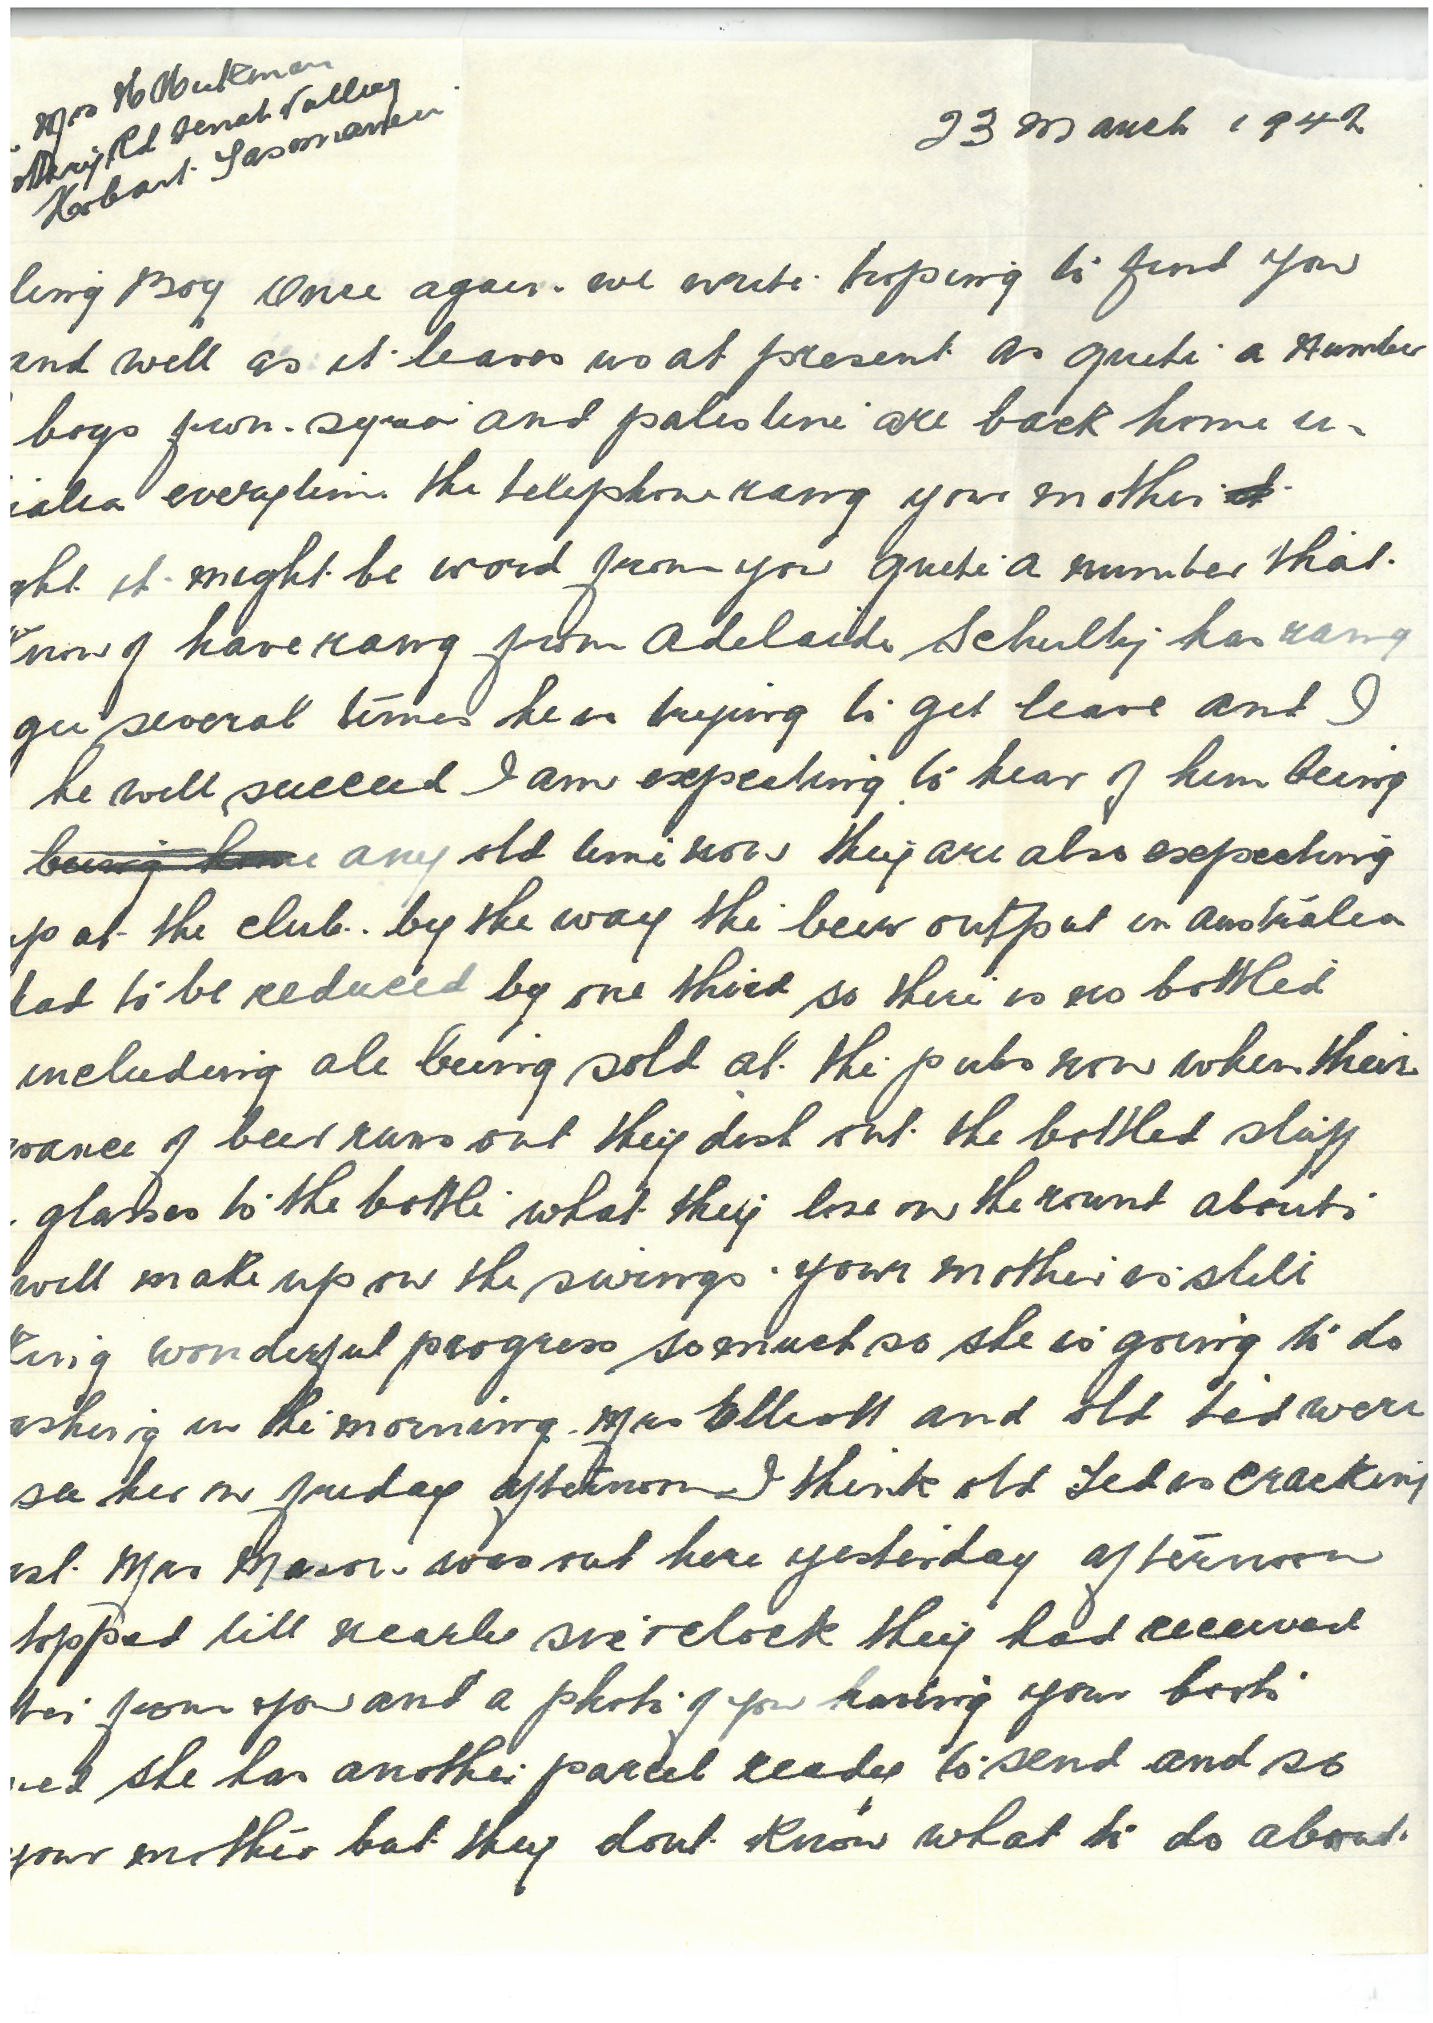 Mrs H
Rd Lenah Valley
Hobart Tasmania
23 March 1942
ling Boy Once again we write hoping to find you
and well as it leaves us at present as quite a number
boys from Syria and palestine are back home in
ralia everytime the telephone rang your mother
ght it might be word from you quite a number that
know of have rang from Adelaide Schultz has rang
several times he is trying to get leave and I
he will succeed I am expecting to hear of him being
being home any old time now they are also expecting
up at the club. by the way the beer output in Australia
had to be reduced by one third so there is no bottled
including ale being sold at the pubs now when their
wance of beer runs out they dish out the bottled stuff
glasses to the bottle what they lose on the round abouts
will make up on the swings. your mother is still
king wonderful progress so much so she is going to do
ashing in the morning. Mrs Elliott and old Ted were
see her on friday afternoon I think old Ted is cracking
Mrs Mason was out here yesterday afternoon
topped till nearly six o'clock they had received
tter from you and a photo of you having your boots
ned she has another parcel ready to send and so
your mother but they dont know what to do about